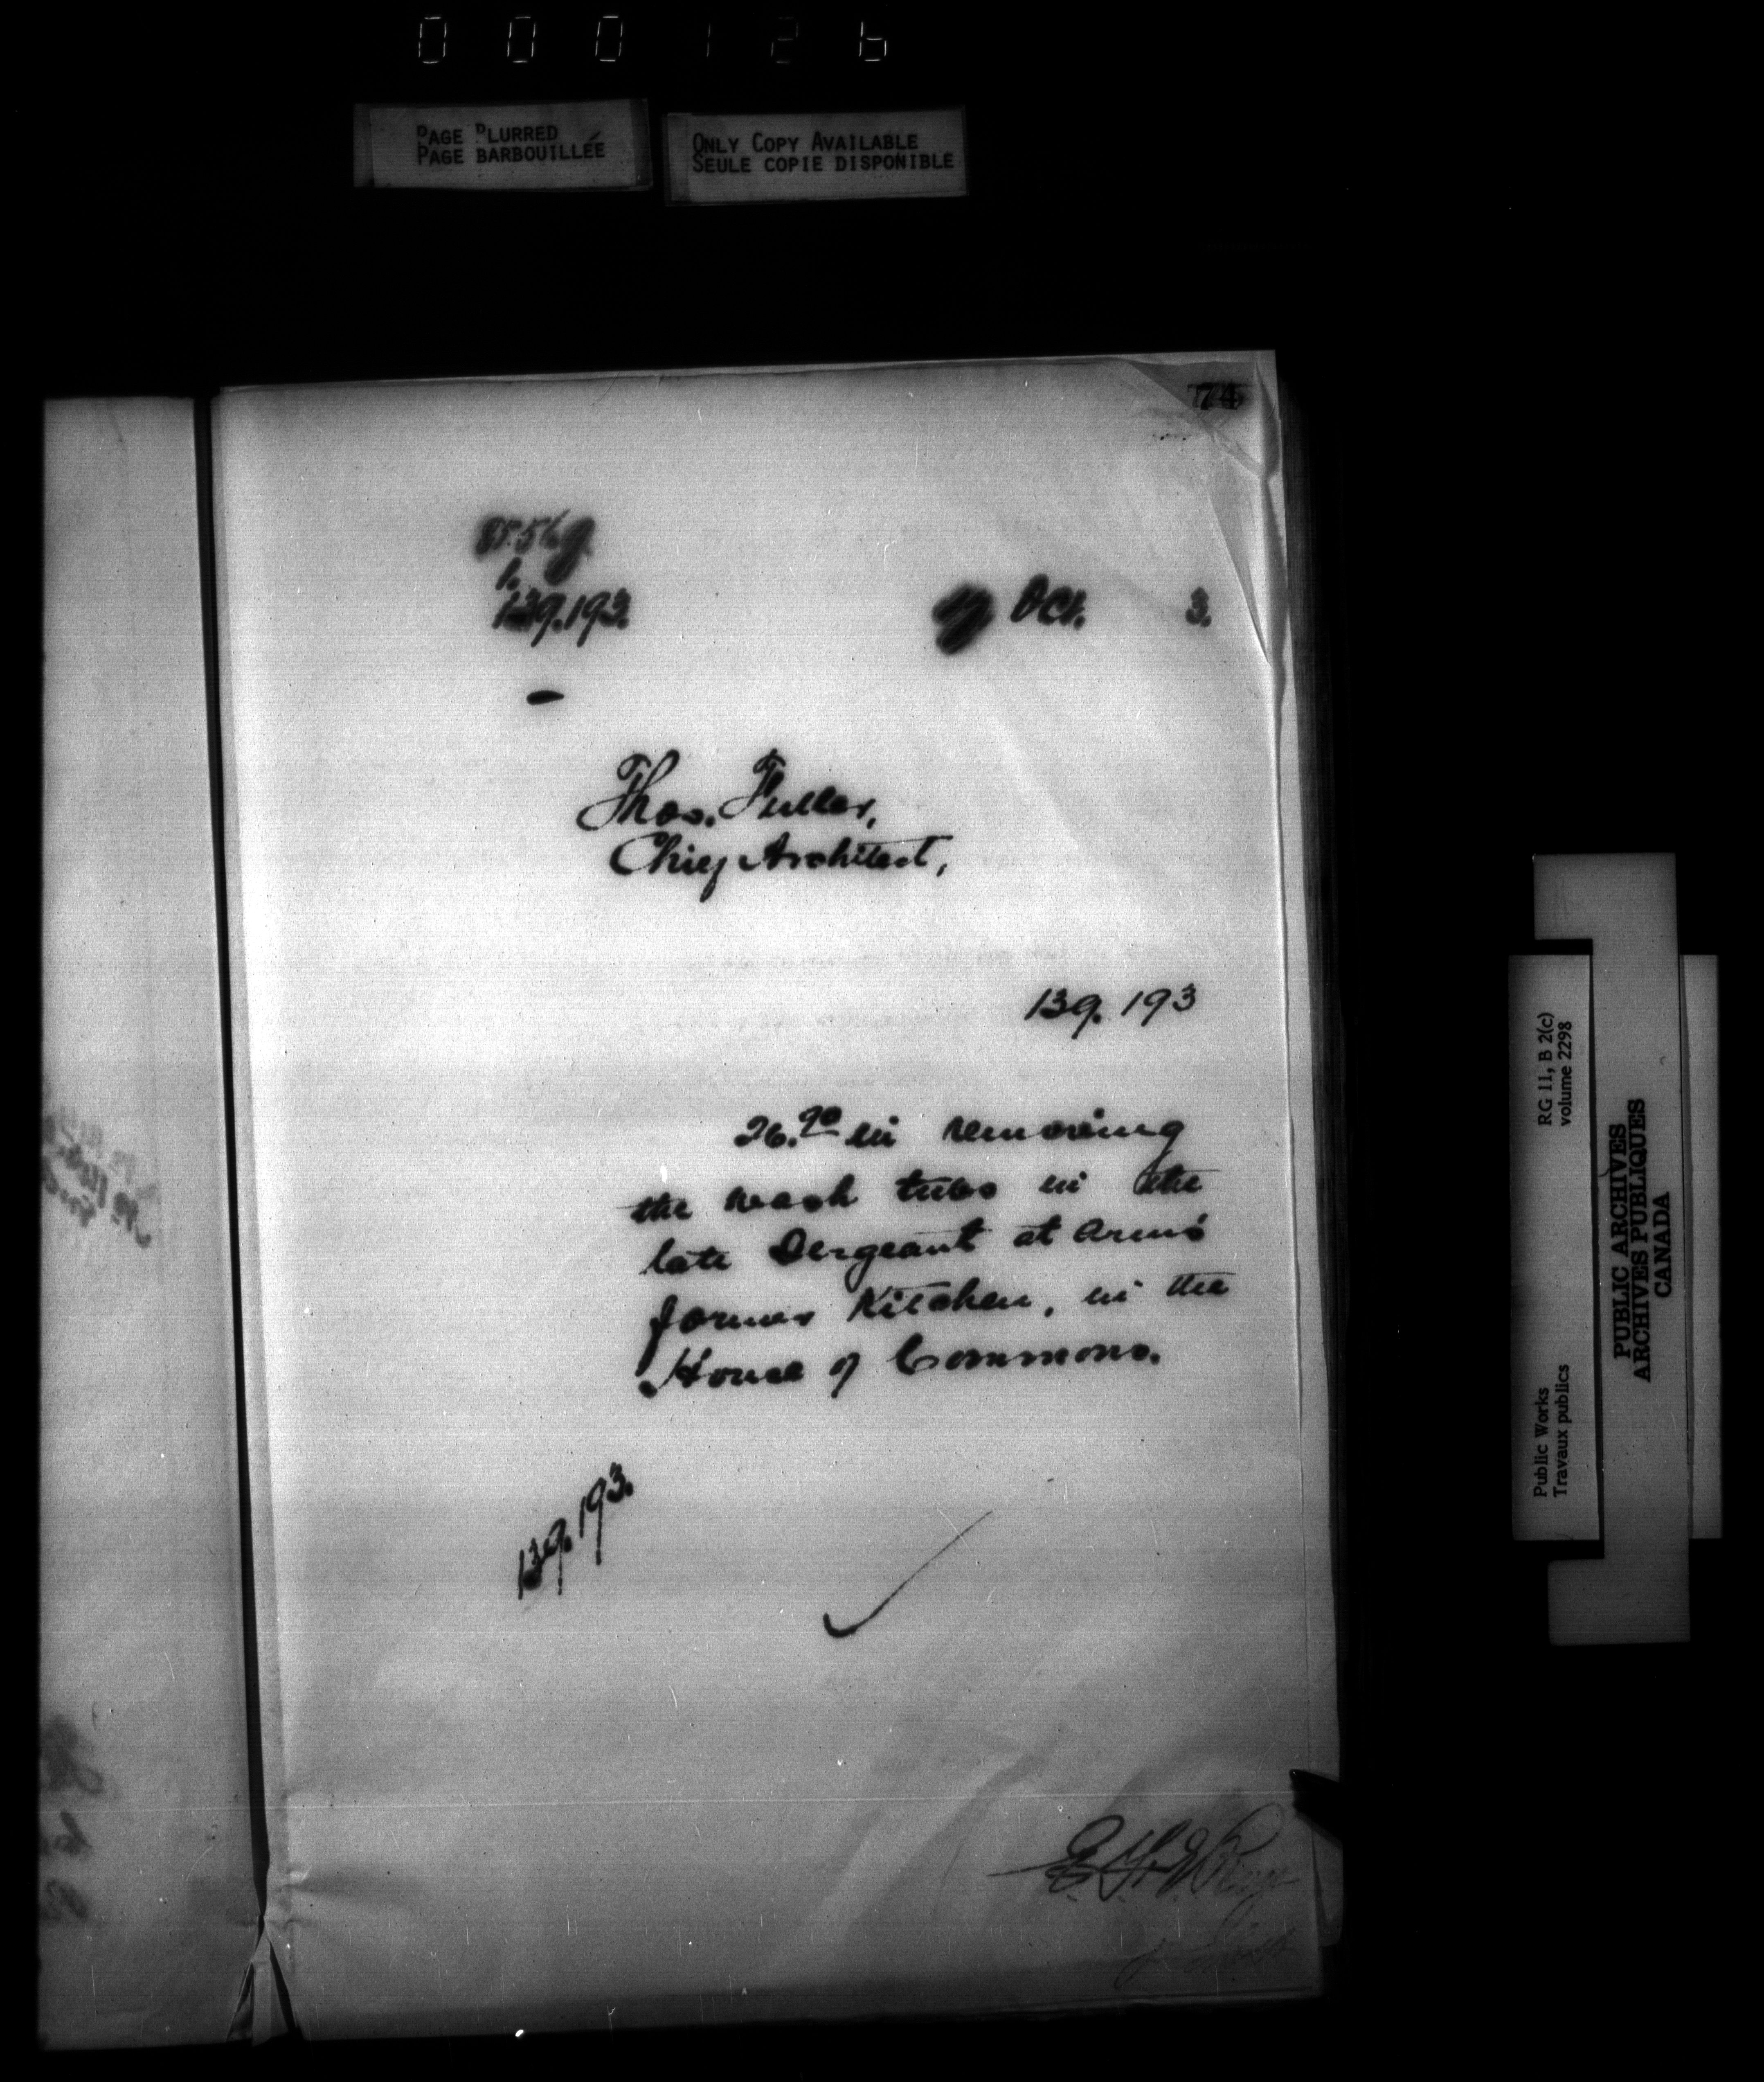 000126
PAGE BLURRED
PAGE BARBOUILLÉE
ONLY COPY AVAILABLE
SEULE COPIE DISPONIBLE
74
1.
139.193.
Oct. 3.
Thos. Fuller,
Chief Architect,
139.193
26.90 in removing
the wash tubs in the
late Sergeant at Arms'
former Kitchen, in the
House of Commons.
139.193.
RG 11, B 2(c)
volume 2298
Public Works
Travaux publics
PUBLIC ARCHIVES
ARCHIVES PUBLIQUES
CANADA